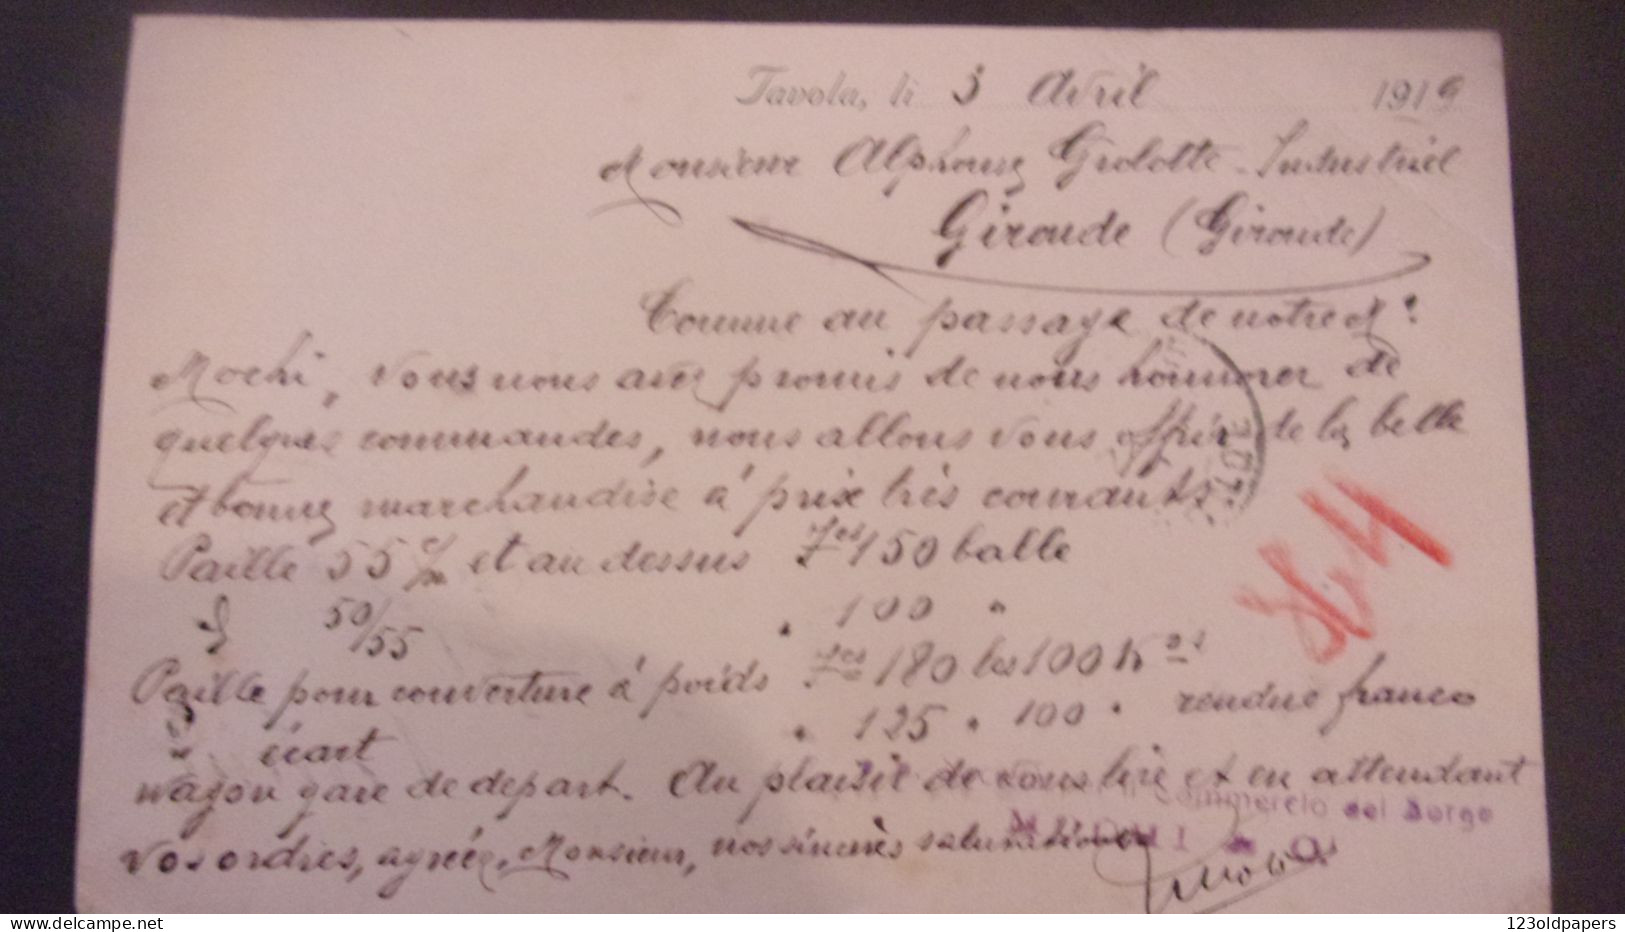 Tavola, li 3 Avril 1919
Monsieur Alphonse Grolotte - Industriel
Gironde (Gironde)
Comme au passage de notre Mr.
Mochi, vous nous avez promis de nous honnorer de
quelques commandes, nous allons vous offrir de la belle
et bonne marchandise a' prix très courants.
Paille 55 c/m et au dessus Fcs 150 balle
" 50/55 " 100 "
Paille pour couverture a' poids Fcs 180 les 100 Kos
" écart " 125 " 100 " rendue franco
wagon gare de depart. Au plaisir de vous lire et en attendant
vos ordres, agréez, Monsieur, nos sincères salutations
Commercio del Borgo
MOCHI
H.4
www.delcampe.net
123oldpapers